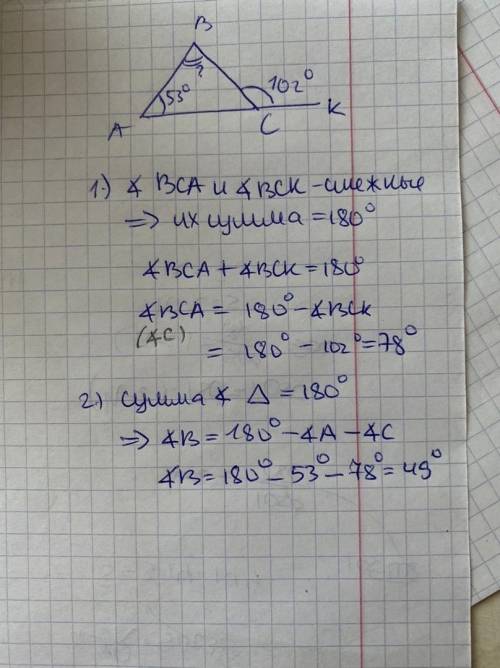 B
53°
?
102°
A
C
K
1.) ∢ BCA и ∢BCK - смежные
=> их сумма = 180°
∢BCA + ∢BCK = 180°
∢BCA = 180° - ∢BCK
(∢C)
= 180° - 102° = 78°
2.) сумма ∢ △ = 180°
=> ∢B = 180° - ∢A - ∢C
∢B = 180° - 53° - 78° = 49°